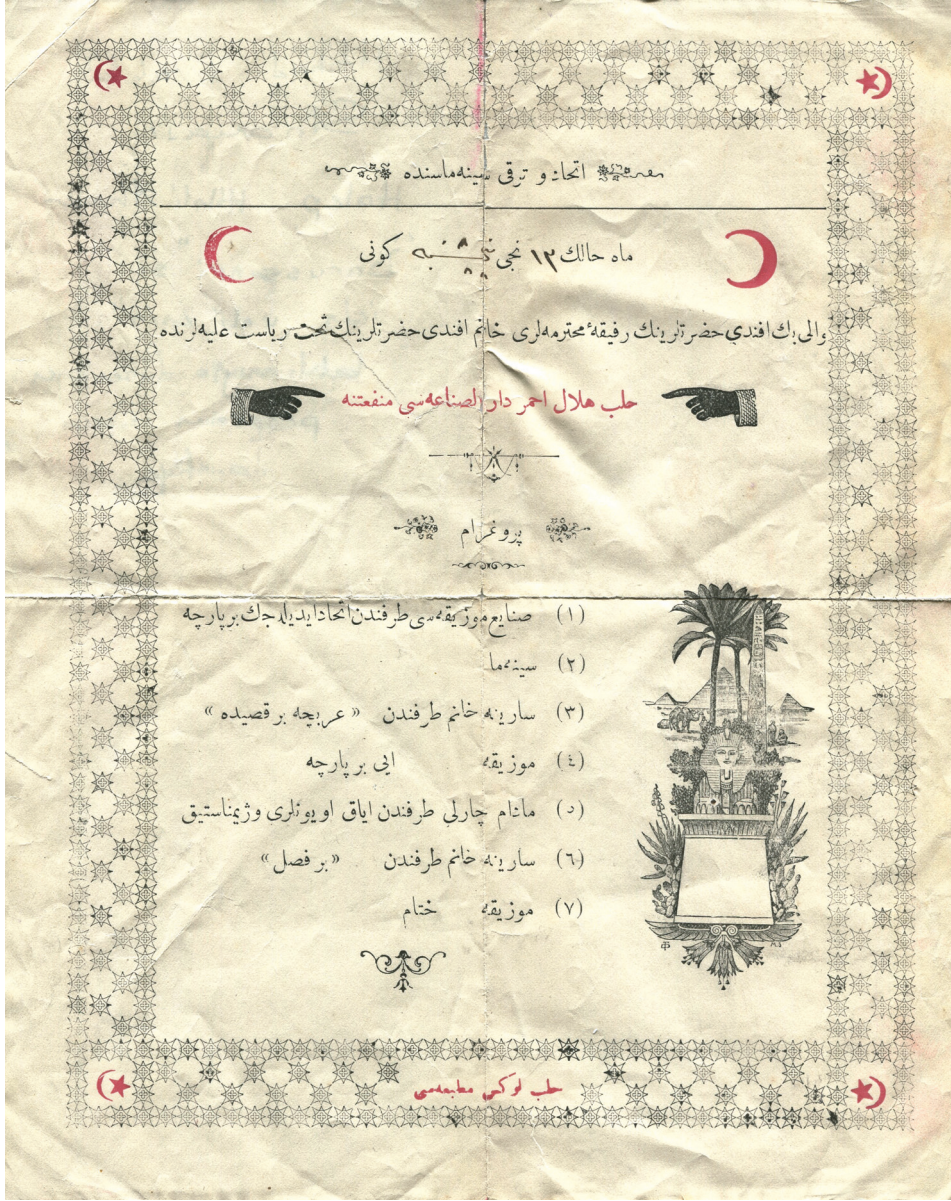 اتحاد و ترقی سینه‌ماسنده
ماه حالك ١٣ نجی شنبه كونی
والی بك افندی حضرتلرینك رفیقهٔ محترمه‌لری خانم افندی حضرتلرینك تحت ریاست علیه‌لرنده
حلب هلال احمر دار الصناعه‌سی منفعتنه
پروغرام
(١) صنایع موزیقه‌سی طرفندن اتخاذ ایدیله‌جك بر پارچه
(٢) سینه‌ما
(٣) سارینه خانم طرفندن « عربجه بر قصیده »
(٤) موزیقه ایی بر پارچه
(٥) مادام چارلی طرفندن ایاق اویونلری وژیمناستیق
(٦) سارینه خانم طرفندن « بر فصل »
(٧) موزیقه ختام
حلب لوكس مطبعه‌سی